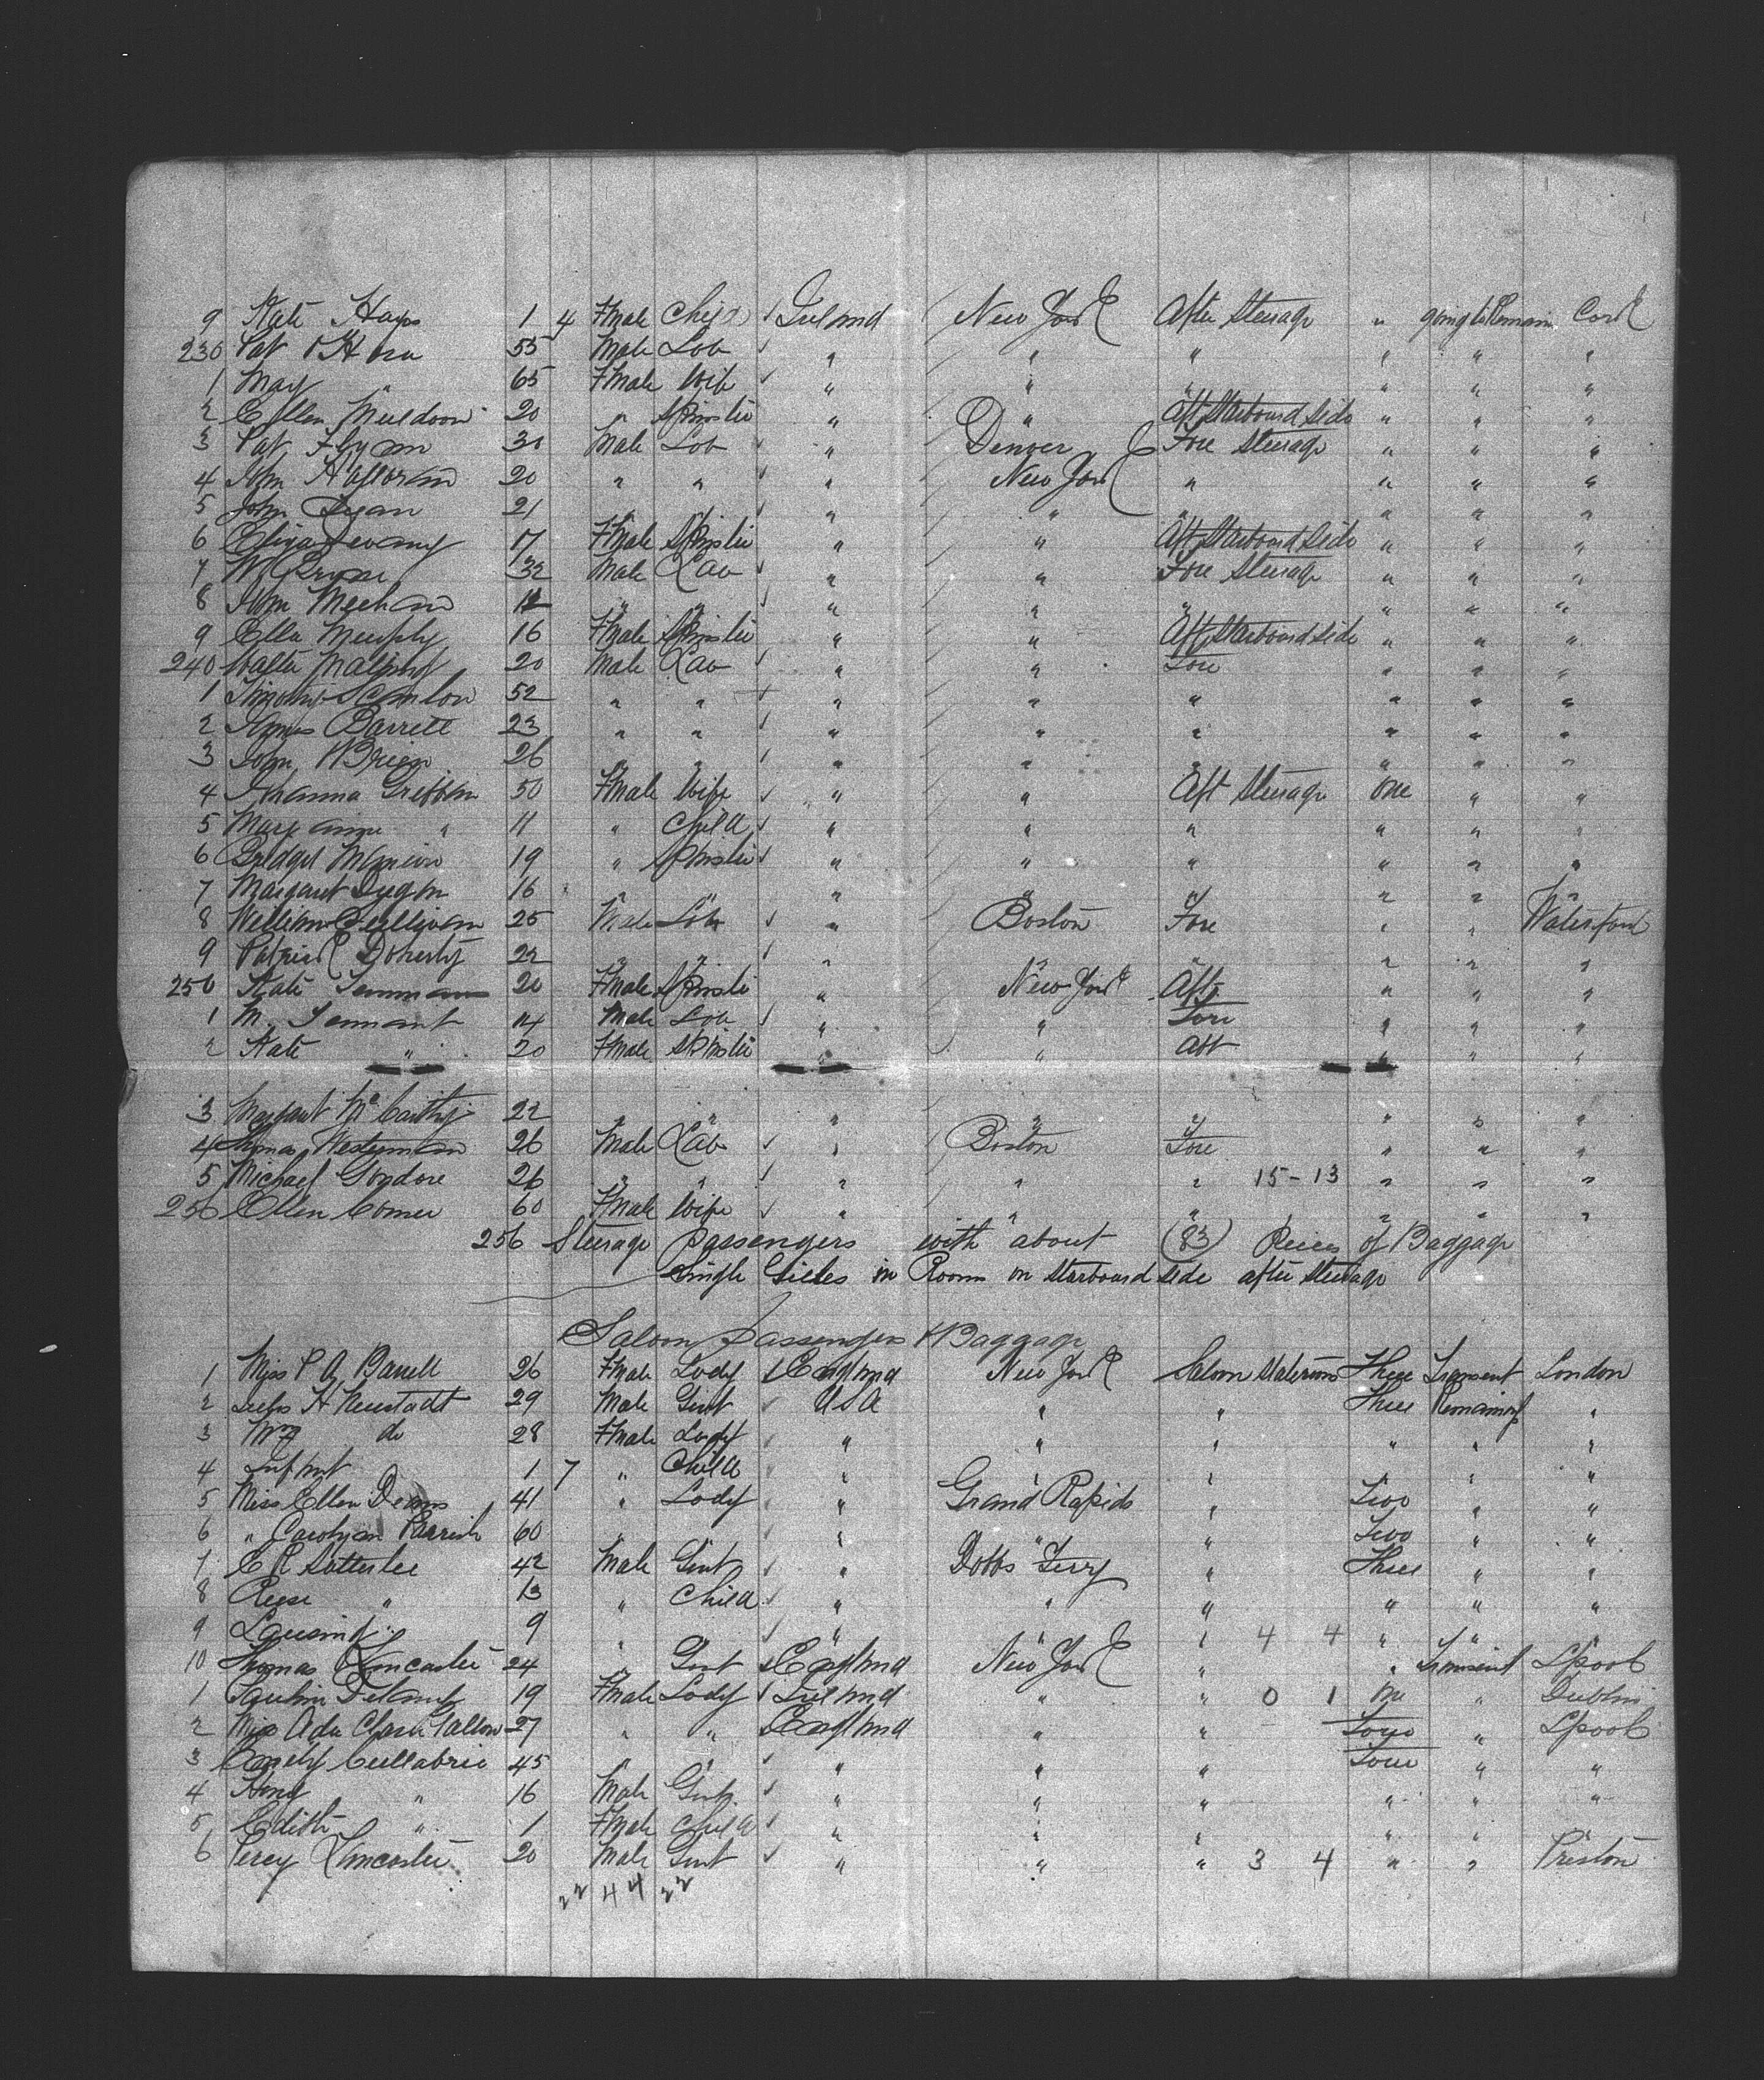 9 Kate Hays 1 4 Fmale Child ✓ Ireland New York After Steerage " going to Remain Cork
230 Pat O'Hara 55 Male Lab ✓ " " " " " "
1 May " 65 Fmale Wife ✓ " " " " " "
2 Ellen Muldoon 20 " Spinster " " Aft Starboard Side " " "
3 Pat Flynn 30 Male Lab ✓ " Denver Fore Steerage " " "
4 John Halloran 20 " " ✓ " New York " " " "
5 John 21 " " ✓ " " " " " "
6 Eliza Devany 17 Fmale Spinster " " Aft Starboard Side " " "
7 W 32 Male Lab ✓ " " Fore Steerage " " "
8 John Meehan 12 " " ✓ " " " " " "
9 Ella Murphy 16 Fmale Spinster " " Aft Starboard side " " "
240 Walter 20 Male Lab ✓ " " Fore " " "
1 Timothy Scanlon 52 " " + " " " " " "
2 James Barrett 23 " " ✓ " " " " " "
3 John O'Brien 26 " " ✓ " " " " " "
4 Johanna Gribben 50 Fmale Wife ✓ " " Aft Steerage One " "
5 Mary anne " 11 " Child ✓ " " " " " "
6 Bridget Manion 19 " Spinster ✓ " " " " " "
7 Margaret 16 " " " " " " " "
8 William Sullivan 25 Male Lab ✓ " Boston Fore " " Waterford
9 Patrick Doherty 22 " " ✓ " " " " " "
250 Kate 20 Fmale Spinster " New York Aft " " "
1 M. Tennant 14 Male Lab ✓ " " Fore " " "
2 Kate " 20 Fmale Spinster " " Aft " " "
3 Margaret McCarthy 22 " " " " " " " "
4 Thomas Westerman 26 Male Lab ✓ " Boston Fore " " "
5 Michael Gondore 26 " " ✓ " " " 15-13 " " "
256 Ellen Comer 60 Fmale Wife ✓ " " " " " "
256 Steerage Passengers with about (83) Pieces of Baggage
Single Girls in Room on Starboard side after Steerage
Saloon Passengers & Baggage
1 Miss P A Barrell 26 Fmale Lady ✓ England New York Saloon Staterooms Three Transient London
2 H Neustadt 29 Male Gent ✓ USA " " Three Remaining "
3 Mrs do 28 Fmale Lady ✓ " " " " " "
4 Infant 1 7 " Child ✓ " " " " " "
5 Miss Ellen Deans 41 " Lady ✓ " Grand Rapids " Two " "
6 " Carolyn Parrish 60 " " ✓ " " " Two " "
7 E R Satterlee 42 Male Gent ✓ " Dobbs Ferry " Three " "
8 Reese " 13 " Child ✓ " " " " " "
9 Lansing " 9 " " ✓ " " " 4 4 " " "
10 Thomas Lancaster 24 " Gent ✓ England New York " " Transient Lpool
1 Pauline 19 Fmale Lady ✓ Ireland " " 0 1 One " Dublin
2 Miss Ada Clara 27 " " England " " Four " Lpool
3 Emely Cullabrie 45 " " ✓ " " " Four " "
4 " 16 Male Gent ✓ " " " " " "
5 Edith " 1 Fmale Child ✓ " " " " " "
6 Percy Lancaster 20 Male Gent ✓ " " " 3 4 " " Preston
22 44 22